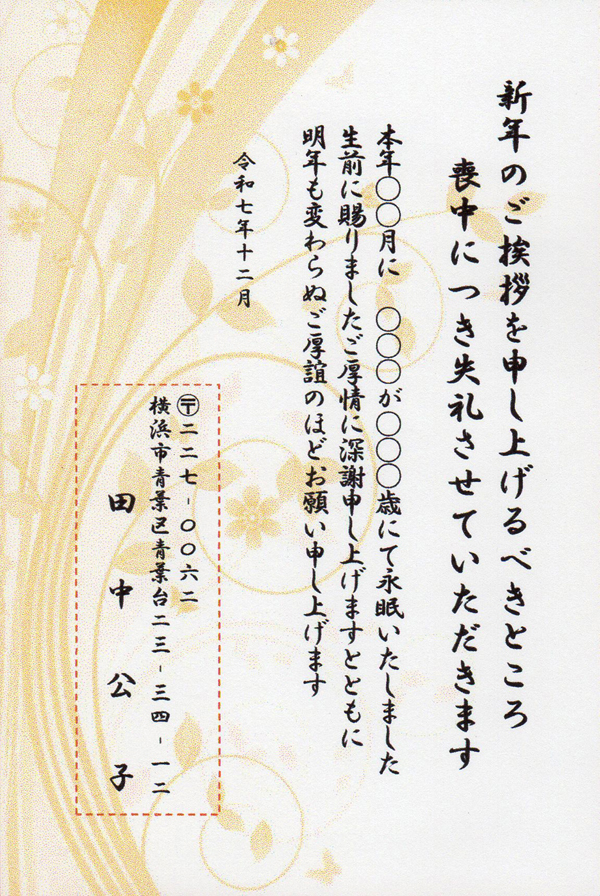 新年のご挨拶を申し上げるべきところ
喪中につき失礼させていただきます
本年〇〇月に　〇〇〇が〇〇〇歳にて永眠いたしました
生前に賜りましたご厚情に深謝申し上げますとともに
明年も変わらぬご厚誼のほどお願い申し上げます
令和七年十二月
〒二二七-〇〇六二
横浜市青葉区青葉台二三-三四-一二
田中公子